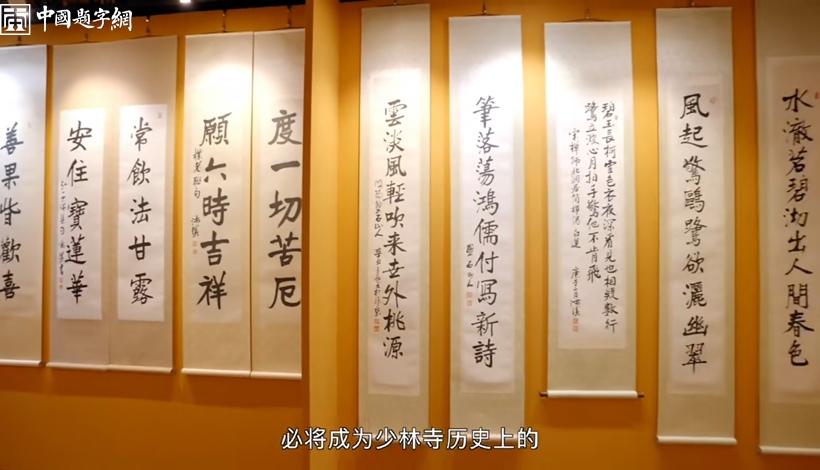 中國题字網
水澈茗碧沏出人間春色
風起驚鷗鷺欲灑幽翠
碧玉長柯雪色衣夜深看見也相疑數行
鷺立波心月拍手驚他不肯飛
筆落蕩鴻儒付寫新詩
雲淡風輕吹来世外桃源
度一切苦厄
願六時吉祥
常飲法甘露
安住寶蓮華
善果皆歡喜
必将成为少林寺历史上的